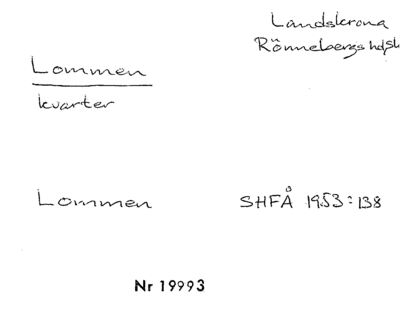 Landskrona
Rönnebergs hd, Sk
Lommen
kvarter
Lommen SHFÅ 1953:138
Nr 19993